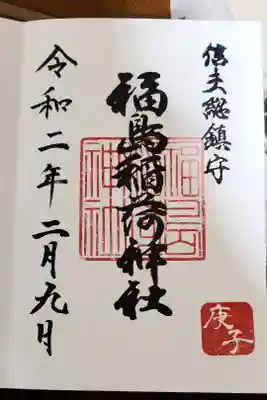 信夫総鎮守
福島稲荷神社
令和二年二月九日
庚子